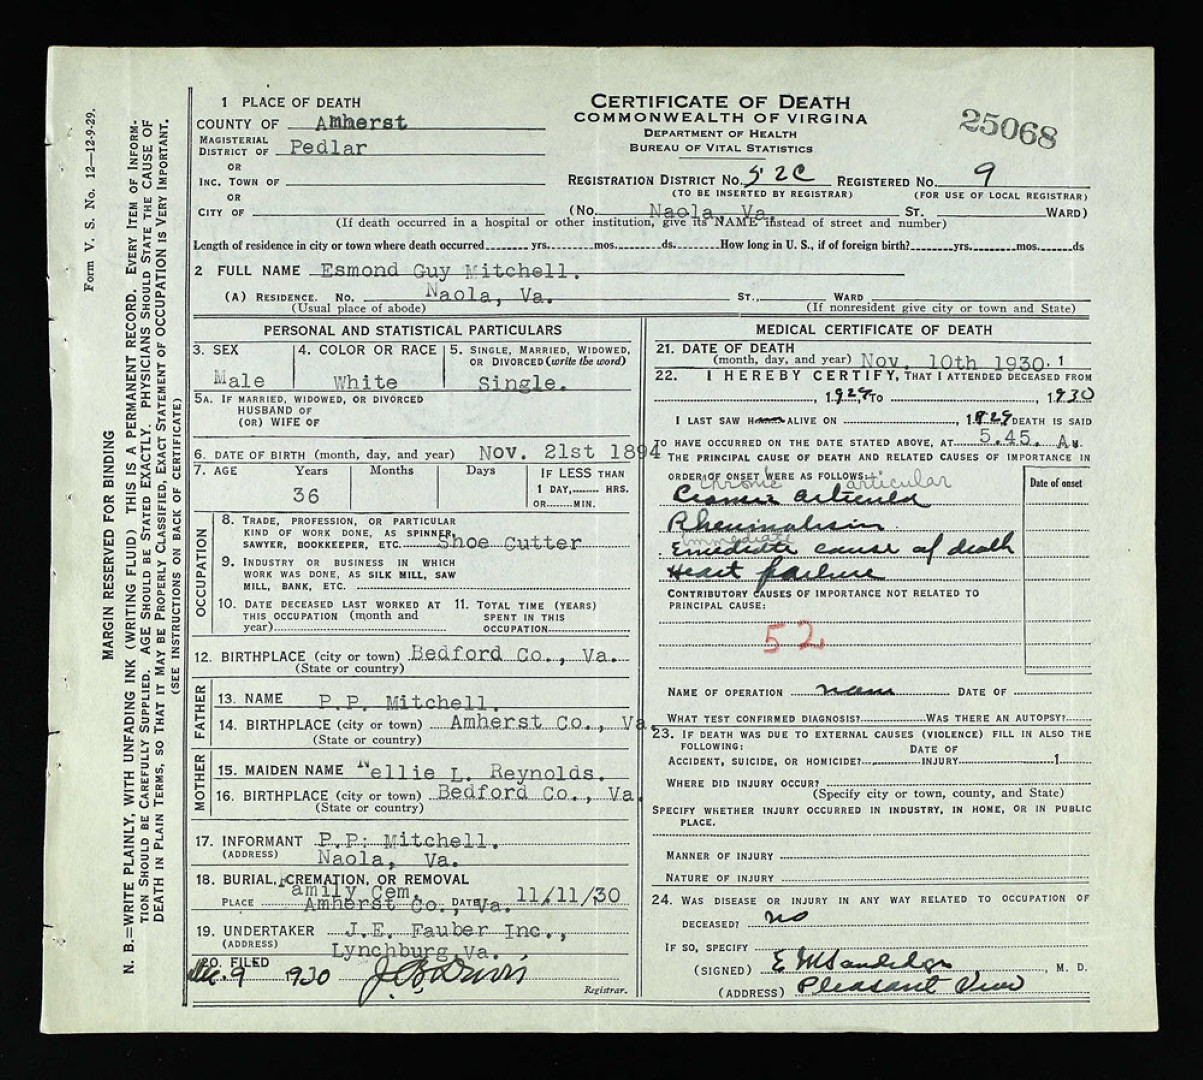 Form V. S. No. 12—12-9-29.
MARGIN RESERVED FOR BINDING
N. B.=WRITE PLAINLY, WITH UNFADING INK (WRITING FLUID) THIS IS A PERMANENT RECORD. EVERY ITEM OF INFORM-
TION SHOULD BE CAREFULLY SUPPLIED. AGE SHOULD BE STATED EXACTLY. PHYSICIANS SHOULD STATE THE CAUSE OF
DEATH IN PLAIN TERMS, SO THAT IT MAY BE PROPERLY CLASSIFIED. EXACT STATEMENT OF OCCUPATION IS VERY IMPORTANT.
(SEE INSTRUCTIONS ON BACK OF CERTIFICATE)
1 PLACE OF DEATH
COUNTY OF Amherst
MAGISTERIAL DISTRICT OF Pedlar
OR
INC. TOWN OF
OR
CITY OF
CERTIFICATE OF DEATH
COMMONWEALTH OF VIRGINIA
DEPARTMENT OF HEALTH
BUREAU OF VITAL STATISTICS
25068
REGISTRATION DISTRICT No. 52C REGISTERED No. 9
(TO BE INSERTED BY REGISTRAR) (FOR USE OF LOCAL REGISTRAR)
(No. Naola, Va. ST. WARD)
(If death occurred in a hospital or other institution, give its NAME instead of street and number)
Length of residence in city or town where death occurred yrs. mos. ds. How long in U. S., if of foreign birth? yrs. mos. ds
2 FULL NAME Esmond Guy Mitchell.
(A) RESIDENCE. No. Naola, Va. ST., WARD
(Usual place of abode) (If nonresident give city or town and State)
PERSONAL AND STATISTICAL PARTICULARS
3. SEX Male
4. COLOR OR RACE White
5. SINGLE, MARRIED, WIDOWED, OR DIVORCED (write the word) Single.
5A. IF MARRIED, WIDOWED, OR DIVORCED
HUSBAND OF
(OR) WIFE OF
6. DATE OF BIRTH (month, day, and year) Nov. 21st 1894
7. AGE Years Months Days IF LESS THAN
36 1 DAY, HRS.
OR MIN.
OCCUPATION
8. TRADE, PROFESSION, OR PARTICULAR
KIND OF WORK DONE, AS SPINNER,
SAWYER, BOOKKEEPER, ETC. Shoe Cutter
9. INDUSTRY OR BUSINESS IN WHICH
WORK WAS DONE, AS SILK MILL, SAW
MILL, BANK, ETC.
10. DATE DECEASED LAST WORKED AT
THIS OCCUPATION (month and
year)
11. TOTAL TIME (YEARS)
SPENT IN THIS
OCCUPATION
12. BIRTHPLACE (city or town) Bedford Co., Va.
(State or country)
FATHER
13. NAME P.P. Mitchell.
14. BIRTHPLACE (city or town) Amherst Co., Va.
(State or country)
MOTHER
15. MAIDEN NAME Nellie L. Reynolds.
16. BIRTHPLACE (city or town) Bedford Co., Va.
(State or country)
17. INFORMANT P.P. Mitchell.
(ADDRESS) Naola, Va.
18. BURIAL, CREMATION, OR REMOVAL
Family Cem.
PLACE Amherst Co., Va. DATE 11/11/30
19. UNDERTAKER J.E. Fauber Inc.,
(ADDRESS) Lynchburg Va.
20. FILED
Dec. 9 1930 Davis
Registrar.
MEDICAL CERTIFICATE OF DEATH
21. DATE OF DEATH
(month, day, and year) Nov. 10th 1930. 1
22. I HEREBY CERTIFY, THAT I ATTENDED DECEASED FROM
, 1929 TO , 1930
I LAST SAW H ALIVE ON , 1929 DEATH IS SAID
TO HAVE OCCURRED ON THE DATE STATED ABOVE, AT 5.45. A M.
THE PRINCIPAL CAUSE OF DEATH AND RELATED CAUSES OF IMPORTANCE IN
ORDER OF ONSET WERE AS FOLLOWS: Date of onset
chronic articular
Rheumatism
immediate
cause of death
Heart failure
CONTRIBUTORY CAUSES OF IMPORTANCE NOT RELATED TO
PRINCIPAL CAUSE:
52
NAME OF OPERATION DATE OF
WHAT TEST CONFIRMED DIAGNOSIS? WAS THERE AN AUTOPSY?
23. IF DEATH WAS DUE TO EXTERNAL CAUSES (VIOLENCE) FILL IN ALSO THE
FOLLOWING: DATE OF
ACCIDENT, SUICIDE, OR HOMICIDE? INJURY 1
WHERE DID INJURY OCCUR?
(Specify city or town, county, and State)
SPECIFY WHETHER INJURY OCCURRED IN INDUSTRY, IN HOME, OR IN PUBLIC
PLACE.
MANNER OF INJURY
NATURE OF INJURY
24. WAS DISEASE OR INJURY IN ANY WAY RELATED TO OCCUPATION OF
DECEASED? no
IF SO, SPECIFY
(SIGNED) , M. D.
(ADDRESS) Pleasant View